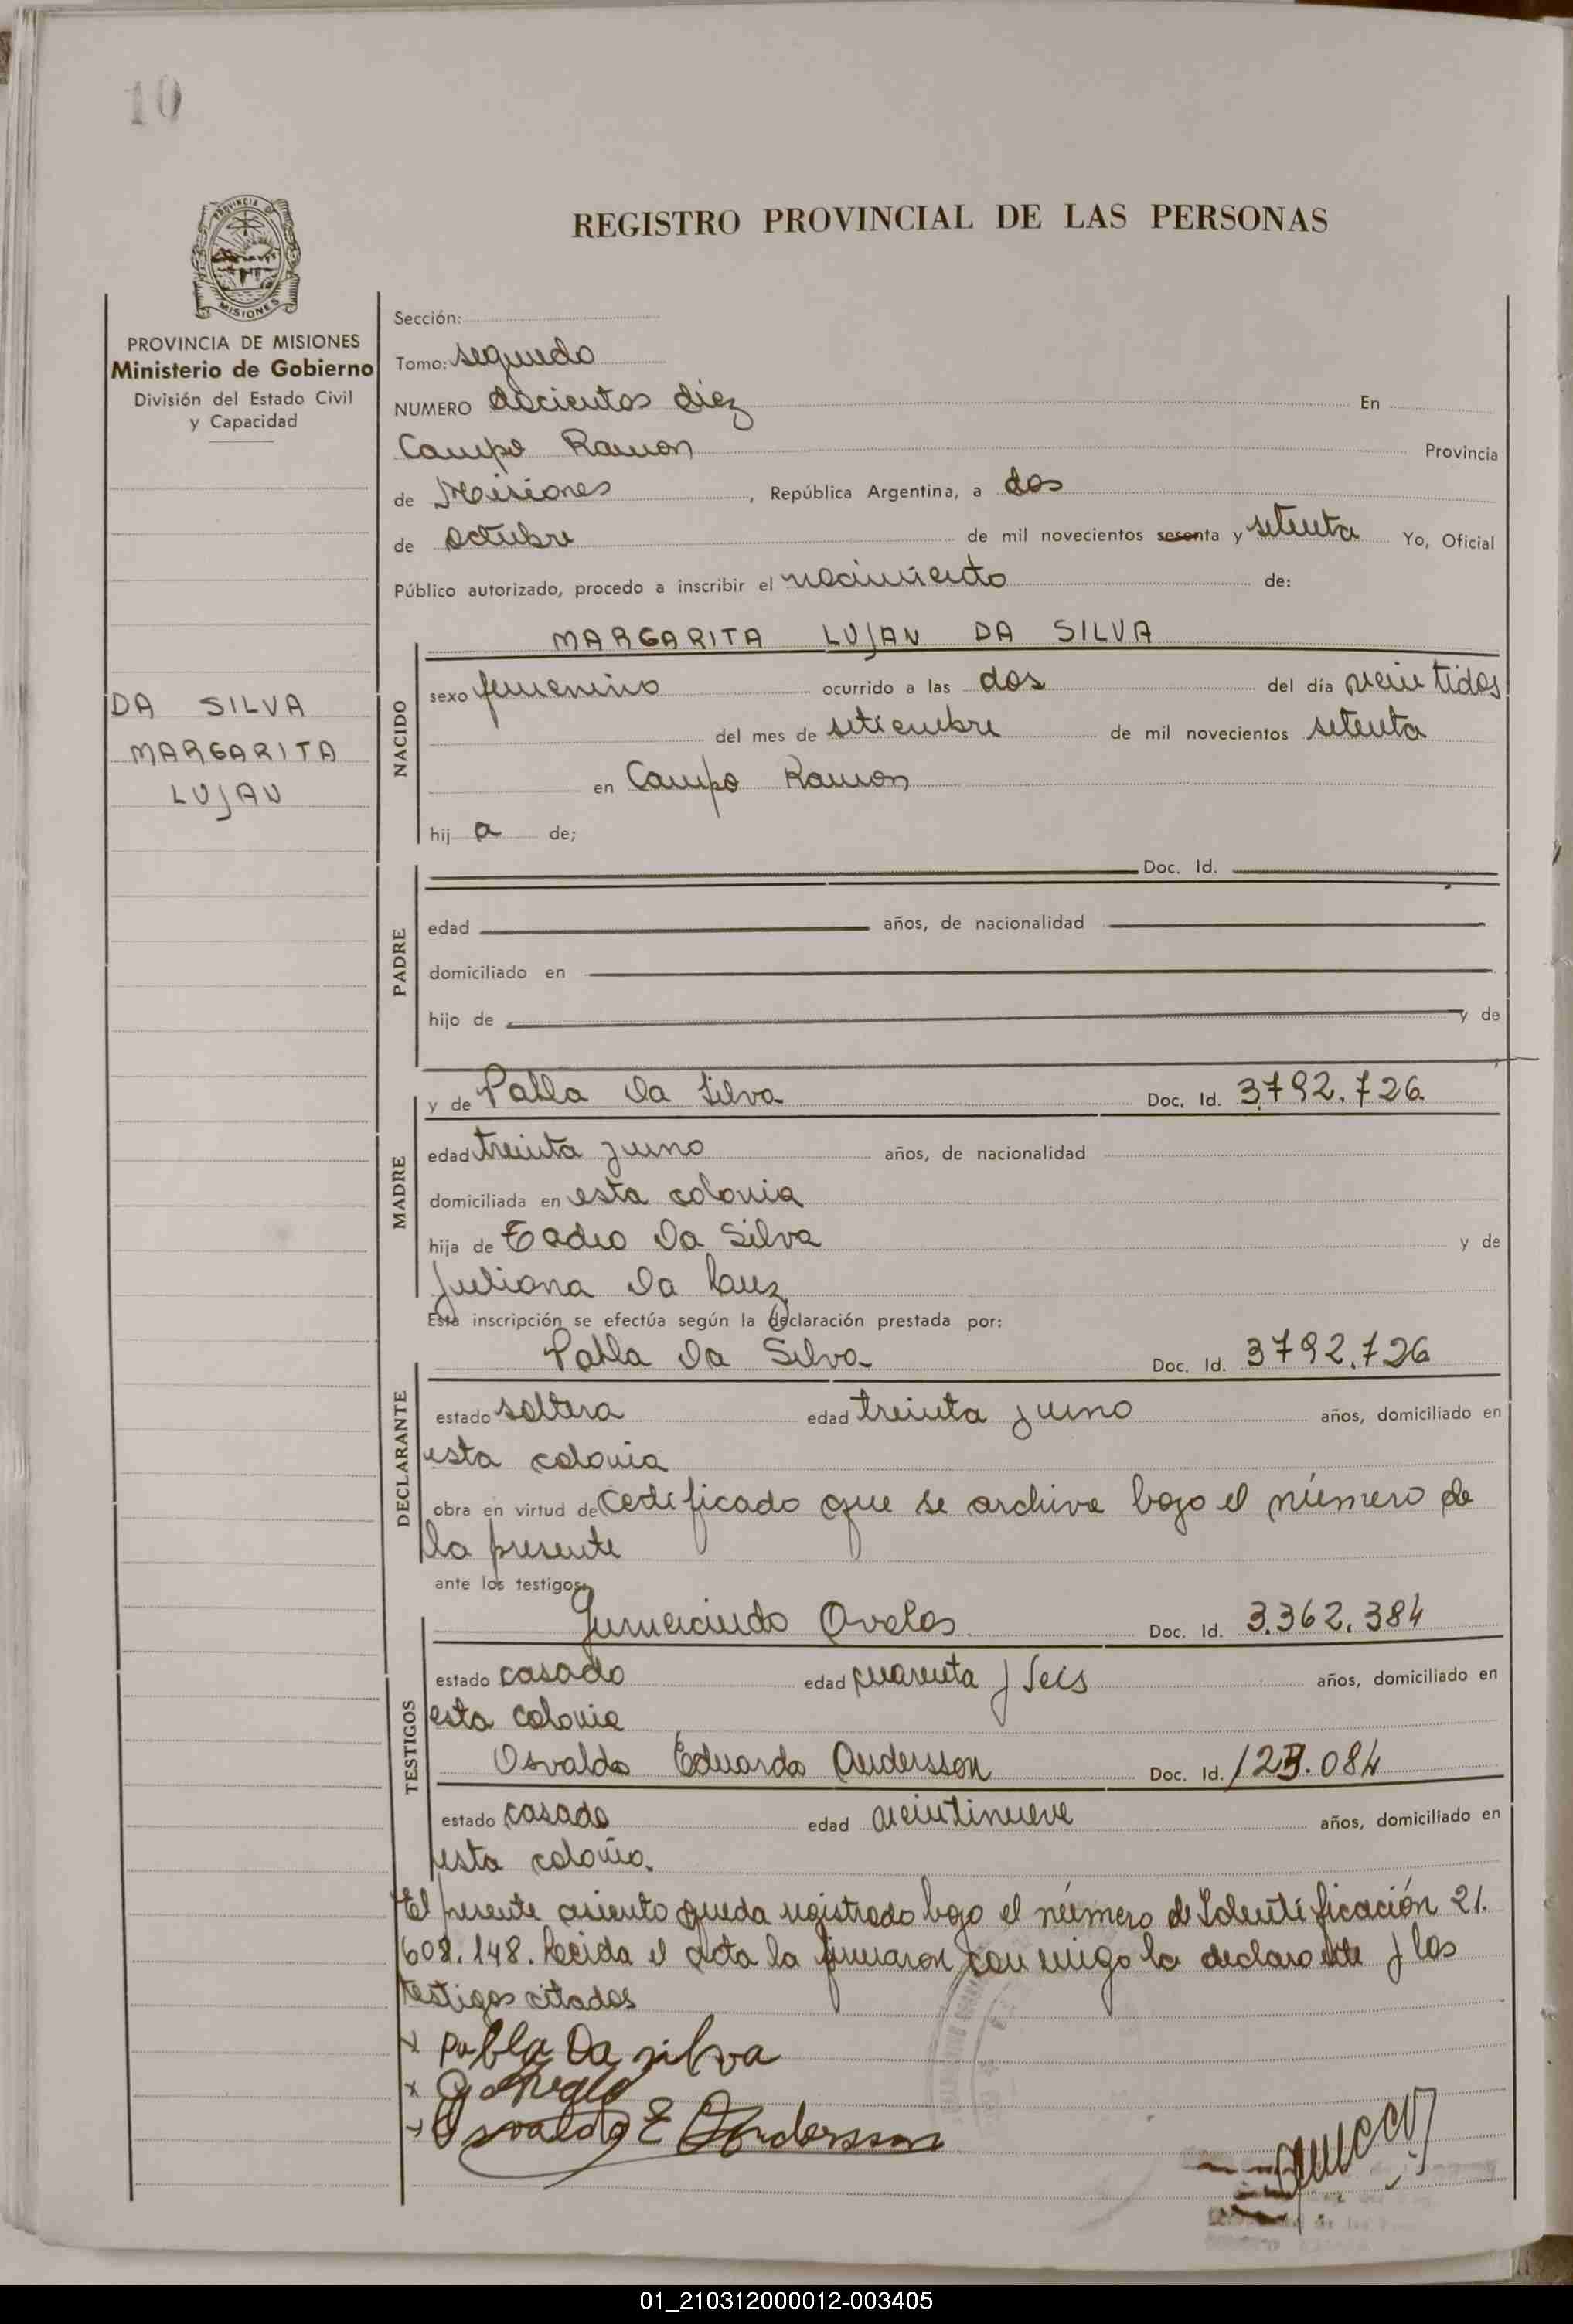 10
REGISTRO PROVINCIAL DE LAS PERSONAS
PROVINCIA DE MISIONES
Ministerio de Gobierno
División del Estado Civil
y Capacidad
DA SILVA
MARGARITA
LUJAN
Sección:
Tomo: segundo
NUMERO docientos diez En
Campo Ramon Provincia
de Misiones, República Argentina, a dos
de octubre de mil novecientos sesenta y setenta Yo, Oficial
Público autorizado, procedo a inscribir el nacimiento de:
MARGARITA LUJAN DA SILVA
NACIDO
sexo femenino ocurrido a las dos del día veintidos
del mes de setiembre de mil novecientos setenta
en Campo Ramon
hij a de;
PADRE
Doc. Id.
edad años, de nacionalidad
domiciliado en
hijo de y de
MADRE
y de Pabla Da Silva Doc. Id. 3.792.726
edad treinta y uno años, de nacionalidad
domiciliada en esta colonia
hija de Tadeo Da Silva y de
Juliana Da Cruz
Esta inscripción se efectúa según la declaración prestada por:
DECLARANTE
Pabla Da Silva Doc. Id. 3792.726
estado soltera edad treinta y uno años, domiciliado en
esta colonia
obra en virtud de Certificado que se archiva bajo el número de
la presente
ante los testigos:
TESTIGOS
Gumercindo Ovelos Doc. Id. 3.362.384
estado casado edad cuarenta y seis años, domiciliado en
esta colonia
Osvaldo Eduardo Andersson Doc. Id. 084
estado casado edad veintinueve años, domiciliado en
esta colonia.
El presente asiento queda registrado bajo el número de Identificación 21.
608.148. Leida el acta la firmaron conmigo la declarante y los
testigos citados
x Pabla Da silva
x
x Osvaldo E Andersson
MISIONES
01_210312000012-003405